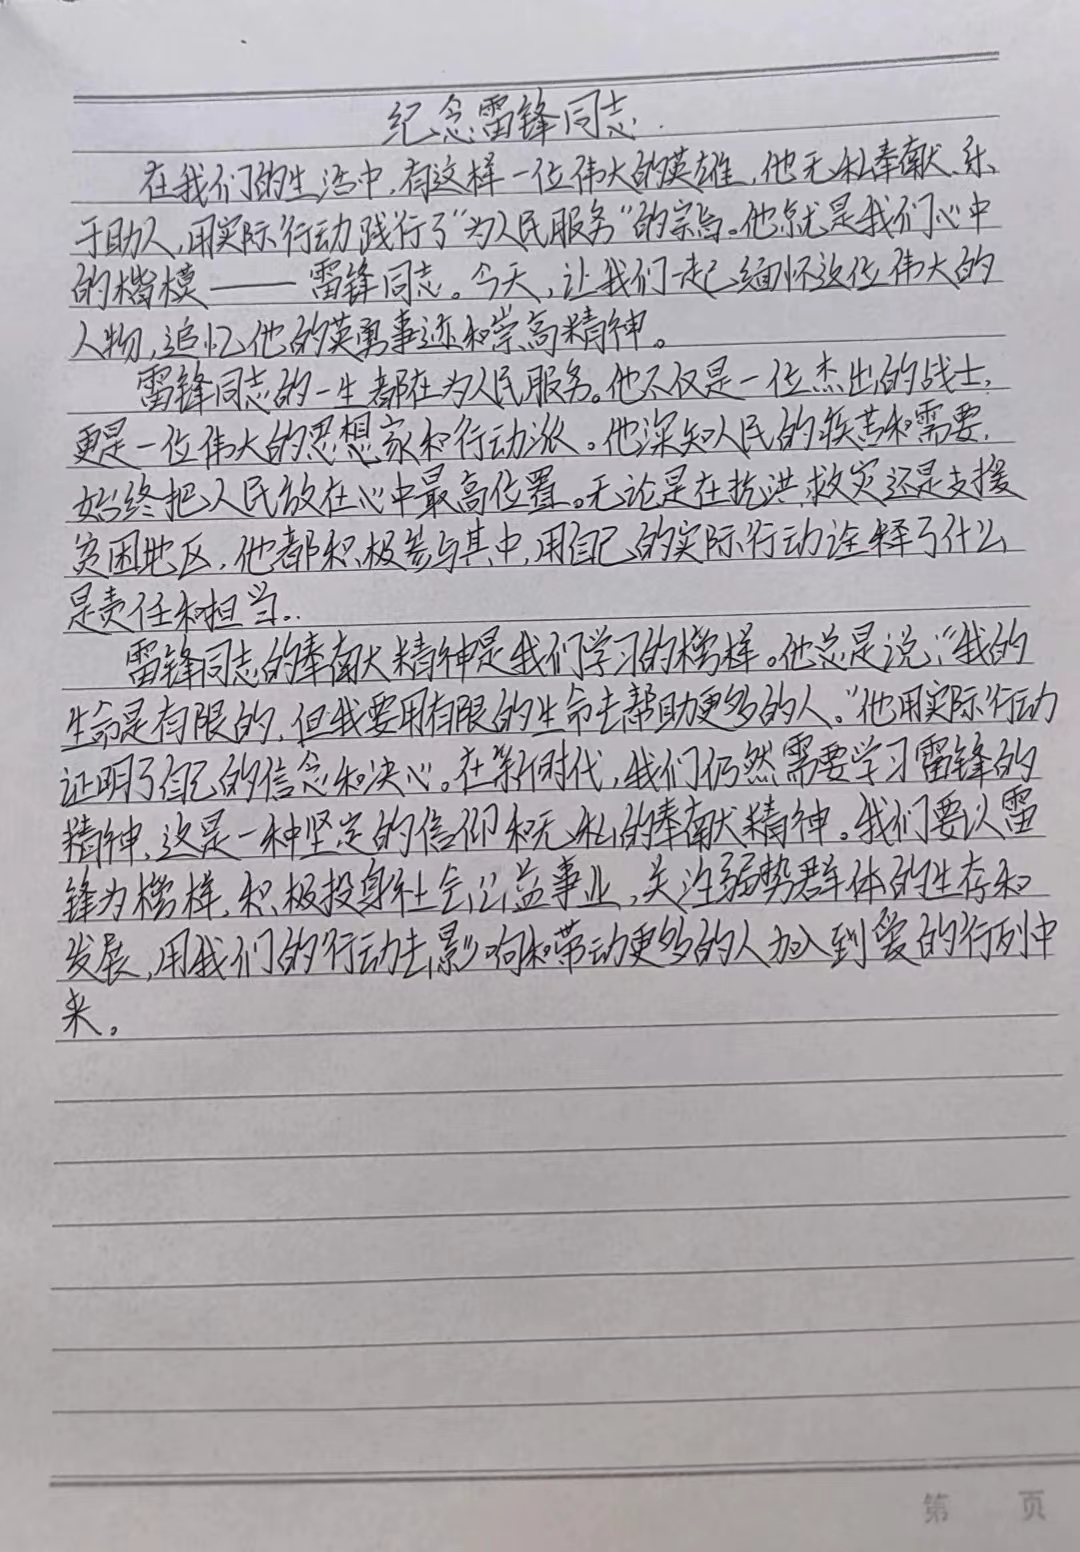 纪念雷锋同志.
在我们的生活中,有这样一位伟大的英雄,他无私奉献、乐
于助人,用实际行动践行了“为人民服务”的宗旨。他就是我们心中
的楷模——雷锋同志。今天,让我们一起缅怀这位伟大的
人物,追忆他的英勇事迹和崇高精神。
雷锋同志的一生都在为人民服务。他不仅是一位杰出的战士,
更是一位伟大的思想家和行动派。他深知人民的疾苦和需要,
始终把人民放在心中最高位置。无论是在抗洪救灾还是支援
贫困地区,他都积极参与其中,用自己的实际行动诠释了什么
是责任和担当..
雷锋同志的奉献精神是我们学习的榜样。他总是说:“我的
生命是有限的,但我要用有限的生命去帮助更多的人。”他用实际行动
证明了自己的信念和决心。在新时代,我们仍然需要学习雷锋的
精神,这是一种坚定的信仰和无私的奉献精神。我们要以雷
锋为榜样,积极投身社会公益事业,关注弱势群体的生存和
发展,用我们的行动去影响和带动更多的人加入到爱的行列中
来。
第 页